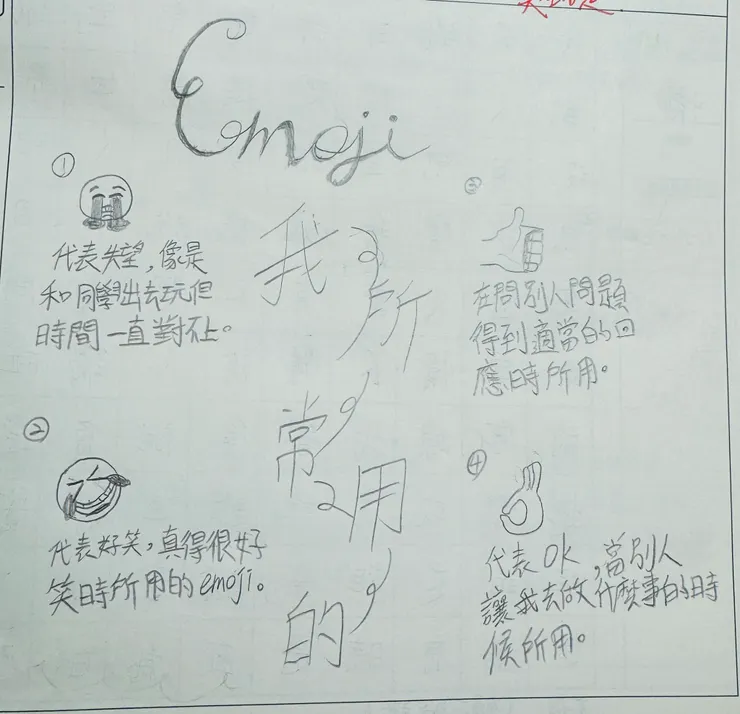 Emoji
我所常用的
①
代表失望，像是
和同學出去玩但
時間一直對不上。
②
代表好笑，真得很好
笑時所用的emoji。
③
在問別人問題
得到適當的回
應時所用。
④
代表OK，當別人
讓我去做什麼事的時
候所用。